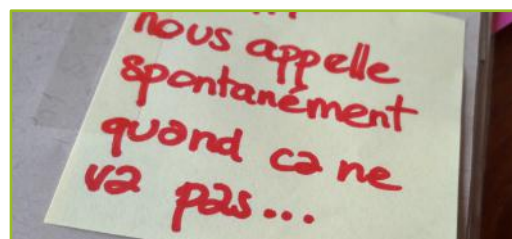 nous appelle
spontanément
quand ca ne
va pas...